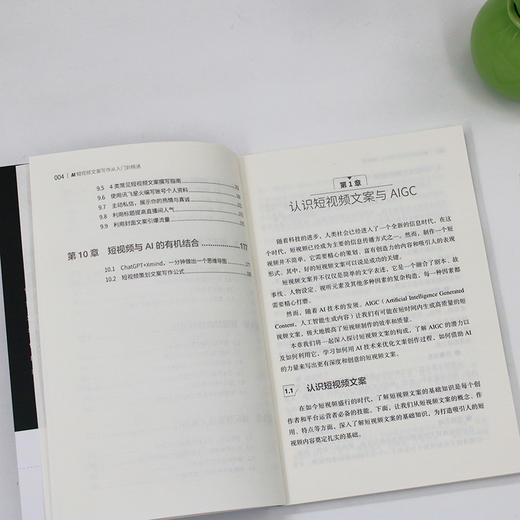 004 | AI 短视频文案写作从入门到精通
9.5 4 类常见短视频文案撰写指南
9.6 使用讯飞星火编写账号个人资料
9.7 主动私信，展示你的热情与真诚
9.8 利用标题提高直播间人气
9.9 利用封面文案引爆流量
第 10 章 短视频与 AI 的有机结合 177
10.1 ChatGPT+Xmind，一分钟做出一个思维导图
10.2 短视频策划文案写作公式
第 1 章
认识短视频文案与 AIGC
随着科技的进步，人类社会已经进入了一个全新的信息时代，在这
个时代，短视频已经成为主要的信息传播方式之一。然而，制作一个短
视频并不简单，它需要精心的策划、富有创造力的内容和吸引人的表现
形式。其中，好的短视频文案可以说是成功的关键。
短视频文案并不仅仅是简单的文字表述，它是一个融合了剧本、故
事线、人物设定、视听元素及其他多种因素的复杂构造，每一种因素都
需要精心打磨。
然而，随着 AI 技术的发展，AIGC（Artificial Intelligence Generated
Content，人工智能生成内容）让我们有可能在短时间内生成高质量的短
视频文案，极大地提高了短视频制作的效率和质量。
本章我们将一起深入探讨短视频文案的构成，了解 AIGC 的潜力以
及如何利用它，学习如何用 AI 技术来优化文案创作过程，如何借助 AI
的力量来写出更有深度和创意的短视频文案。
1.1 认识短视频文案
在如今短视频盛行的时代，了解短视频文案的基础知识是每个创
作者和平台运营者必备的技能。下面，让我们从短视频文案的概念、作
用、特点等方面，深入了解短视频文案的基础知识，为打造吸引人的短
视频内容奠定扎实的基础。